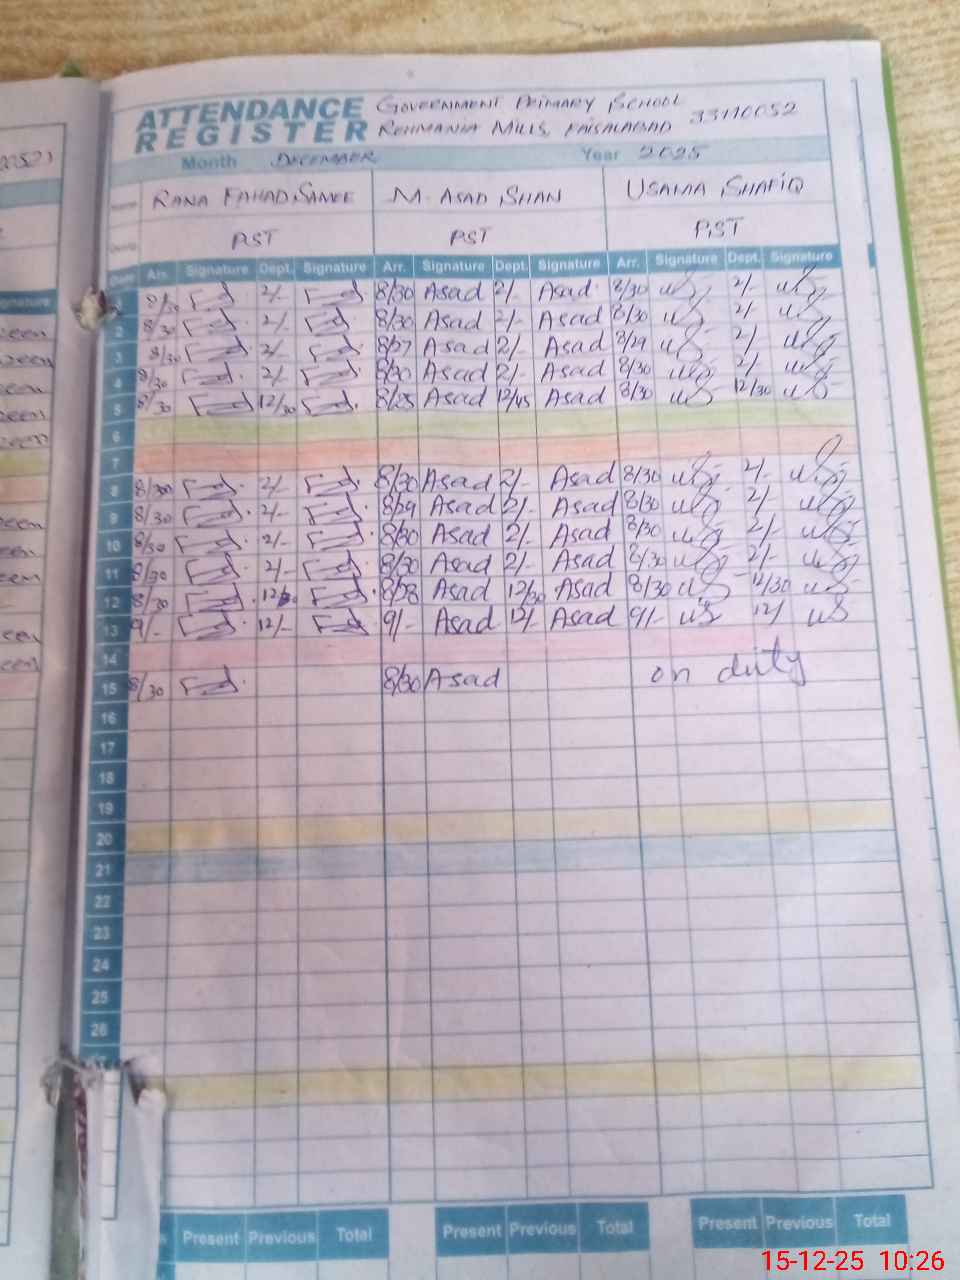 ATTENDANCE REGISTER
GOVERNMENT PRIMARY SCHOOL 33110052
REHMANIA MILLS, FAISALABAD
Month DECEMBER Year 2025
Name RANA FAHAD SAMEE M. ASAD SHAN USAMA SHAFIQ
PST PST PST
Date Arr. Signature Dept. Signature Arr. Signature Dept. Signature Arr. Signature Dept. Signature
1 8/30 2/- 8/30 Asad 2/- Asad 8/30 2/-
2 8/30 2/- 8/30 Asad 2/- Asad 8/30 2/-
3 8/30 2/- 8/27 Asad 2/- Asad 8/29 2/-
4 8/30 2/- 8/30 Asad 2/- Asad 8/30 2/-
5 8/30 12/30 8/25 Asad 12/45 Asad 8/30 12/30
6
7
8 8/30 2/- 8/30 Asad 2/- Asad 8/30 2/-
9 8/30 2/- 8/29 Asad 2/- Asad 8/30 2/-
10 8/30 2/- 8/30 Asad 2/- Asad 8/30 2/-
11 8/30 2/- 8/30 Asad 2/- Asad 8/30 2/-
12 8/30 8/28 Asad 12/30 Asad 8/30 12/30
13 9/- 12/- 9/- Asad 12/- Asad 9/- 12/
14
15 8/30 8/30 Asad on duty
16
17
18
19
20
21
22
23
24
25
26
Present Previous Total Present Previous Total Present Previous Total
15-12-25 10:26